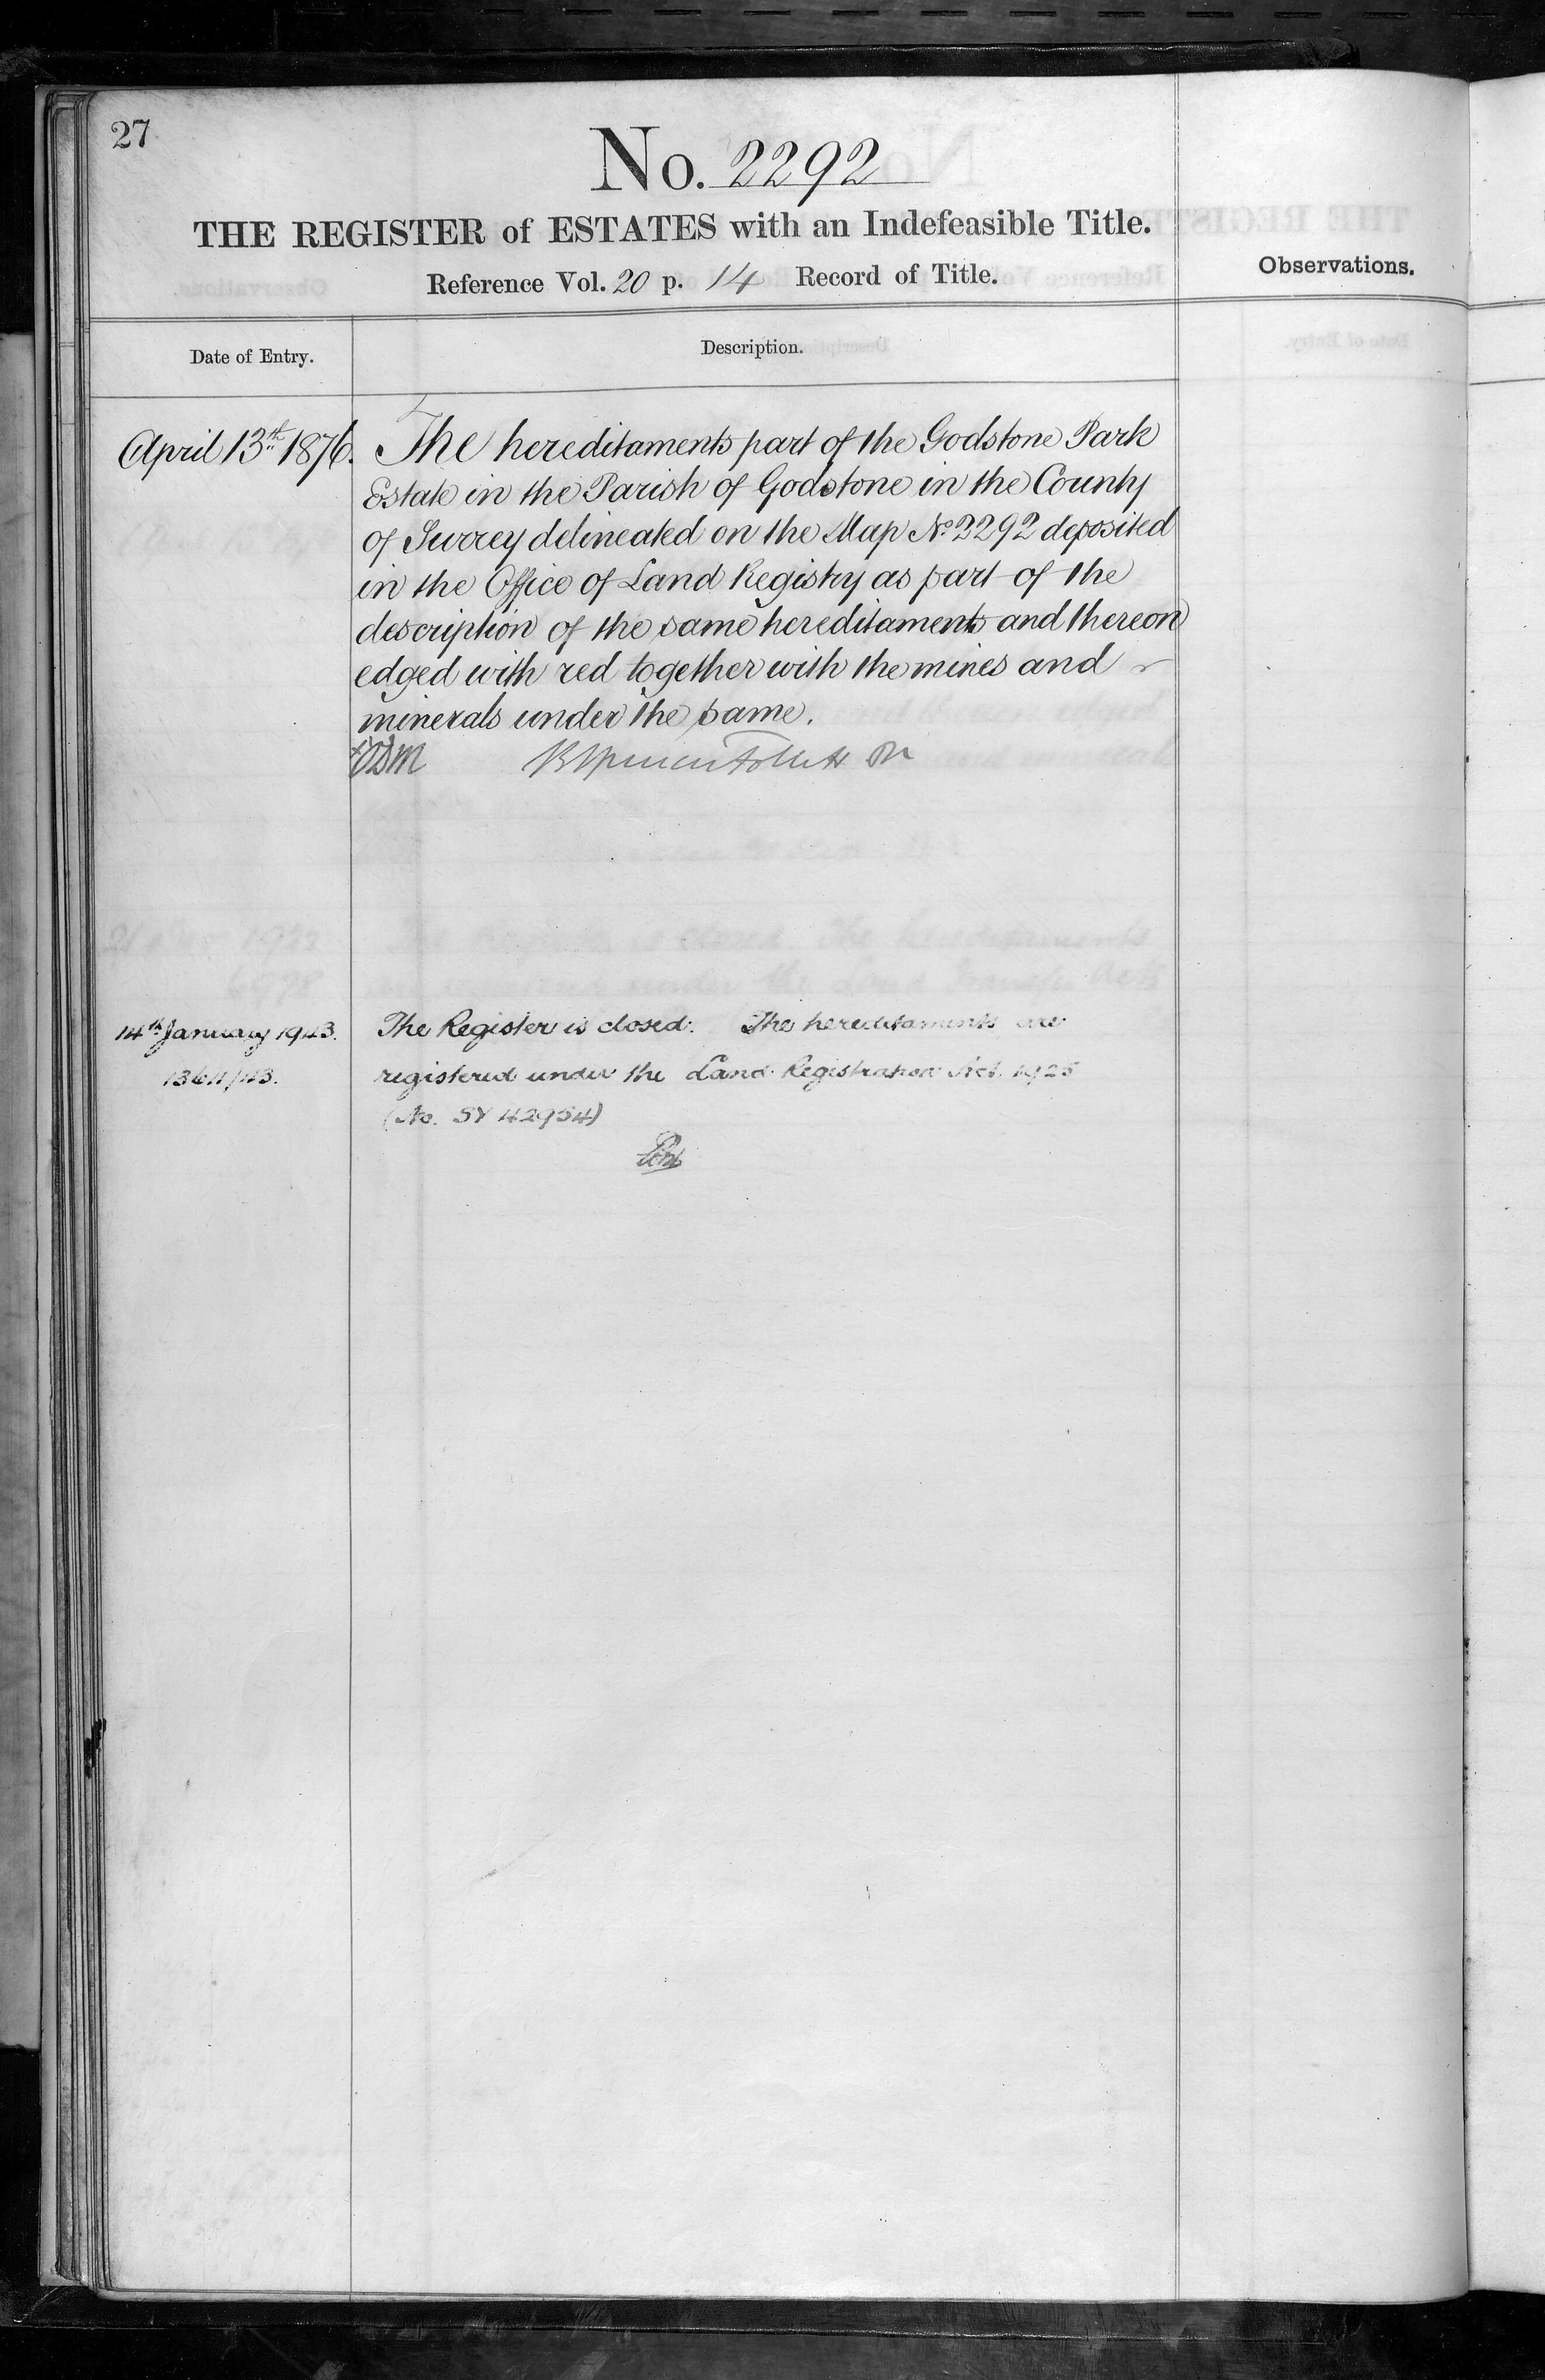 27
No. 2292
THE REGISTER of ESTATES with an Indefeasible Title.
Reference Vol. 20 p. 14 Record of Title.
Observations.
Date of Entry.
Description.
April 13th 1876.
The hereditaments part of the Godstone Park
Estate in the Parish of Godstone in the County
of Surrey delineated on the Map No 2292 deposited
in the Office of Land Registry as part of the
description of the same hereditaments and thereon
edged with red together with the mines and
minerals under the same.
14th January 1943.
1364/43.
The Register is closed. The hereditaments are
registered under the Land Registration Act. 1925
(No. SY 42954)